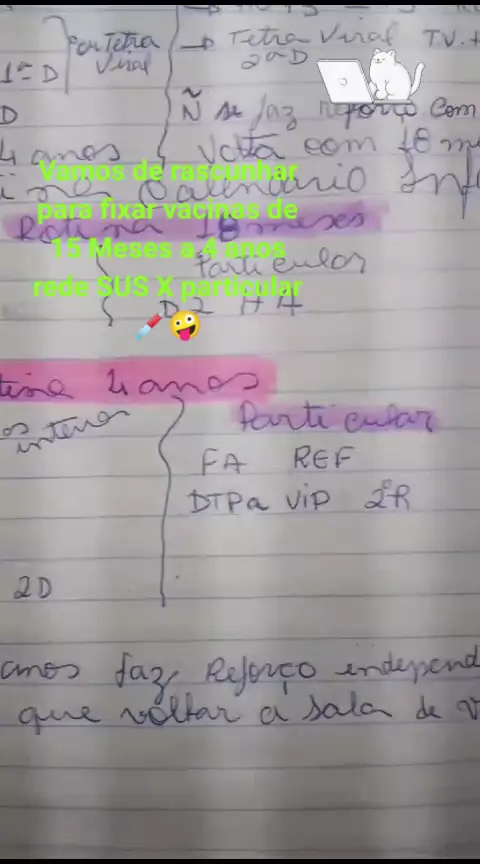 Tetra Viral T.V. +
1ª D
Tetra
Viral
2ª D
D
Ñ se faz reforço com
4 anos
Volta com 18 m
Calendário Inf
Vamos de rascunhar
para fixar vacinas de
15 Meses a 4 anos
rede SUS X particular
Rotina 18 meses
Particular
D2 HA
4 anos
Particular
FA REF
DTPa VIP 2ºR
2D
anos faz Reforço independ
que voltar a sala de v